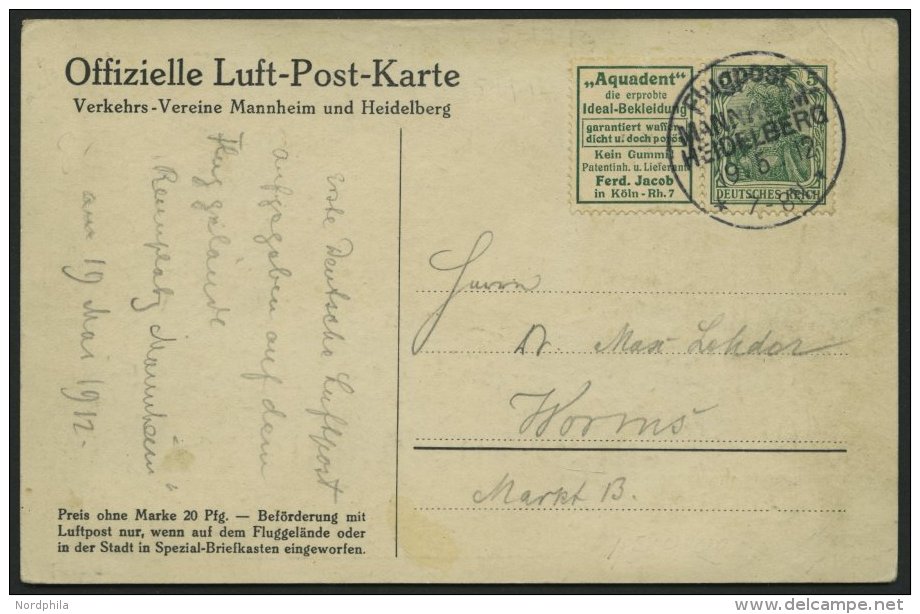 Offizielle Luft-Post-Karte
Verkehrs-Vereine Mannheim und Heidelberg
„Aquadent“
die erprobte
Ideal-Bekleidung
garantiert wasser-
dicht u. doch porös
Kein Gummi
Patentinh. u. Lieferant
Ferd. Jacob
in Köln-Rh. 7
5
DEUTSCHES REICH
Flugpost
MANNHEIM
HEIDELBERG
19. 5. 12
* 7-8 *
Erste Deutsche Luftpost
aufgegeben auf dem
Fluggelände
Rennplatz Mannheim
am 19 Mai 1912.
Herrn
Dr. Max
Worms
Markt B.
Preis ohne Marke 20 Pfg. — Beförderung mit
Luftpost nur, wenn auf dem Fluggelände oder
in der Stadt in Spezial-Briefkasten eingeworfen.
Nordphila
delcampe.net